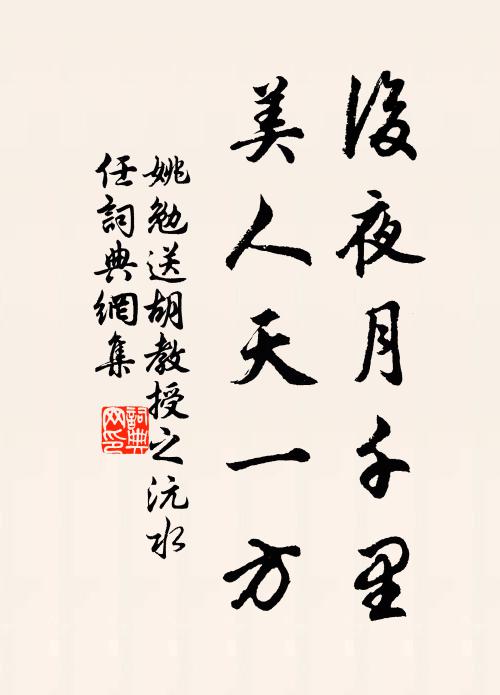 後夜月千里
美人天一方
姚勉送胡教授之沅水
任詞典網集
詞典
網印